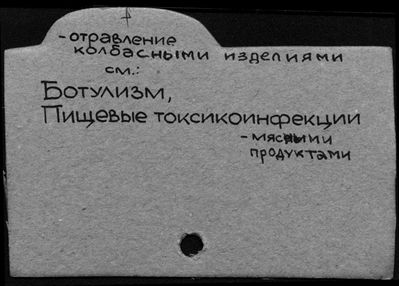 - отравление
колбасными изделиями
см.:
Ботулизм,
Пищевые токсикоинфекции
- мясными
продуктами